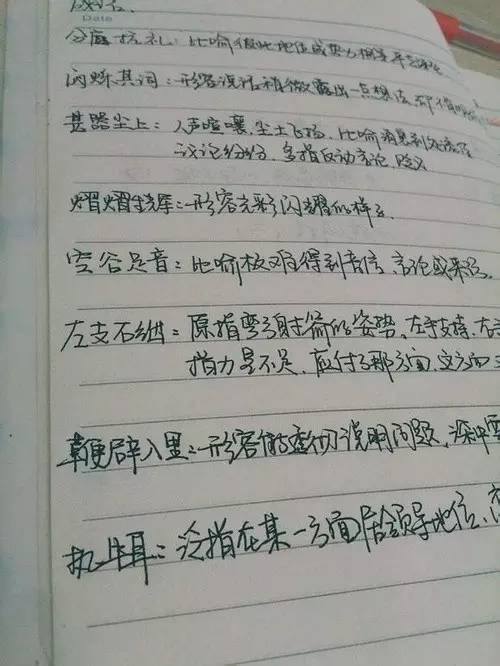 成语.
Date
分庭抗礼: 比喻彼此地位或势力相等平起平坐
闪烁其词: 形容说话稍微露出一点想法, 却不肯
甚嚣尘上: 人声喧嚷, 尘土飞扬. 比喻消息到处流传
议论纷纷. 多指反动言论, 贬义
熠熠生辉: 形容光彩闪耀的样子.
空谷足音: 比喻极难得到音信、言论或来访.
左支右绌: 原指弯弓射箭的姿势, 左手支持, 右手
指力量不足, 应付了那方面, 这方面
鞭辟入里: 形容能透彻说明问题, 深中要
执牛耳: 泛指在某一方面居领导地位,